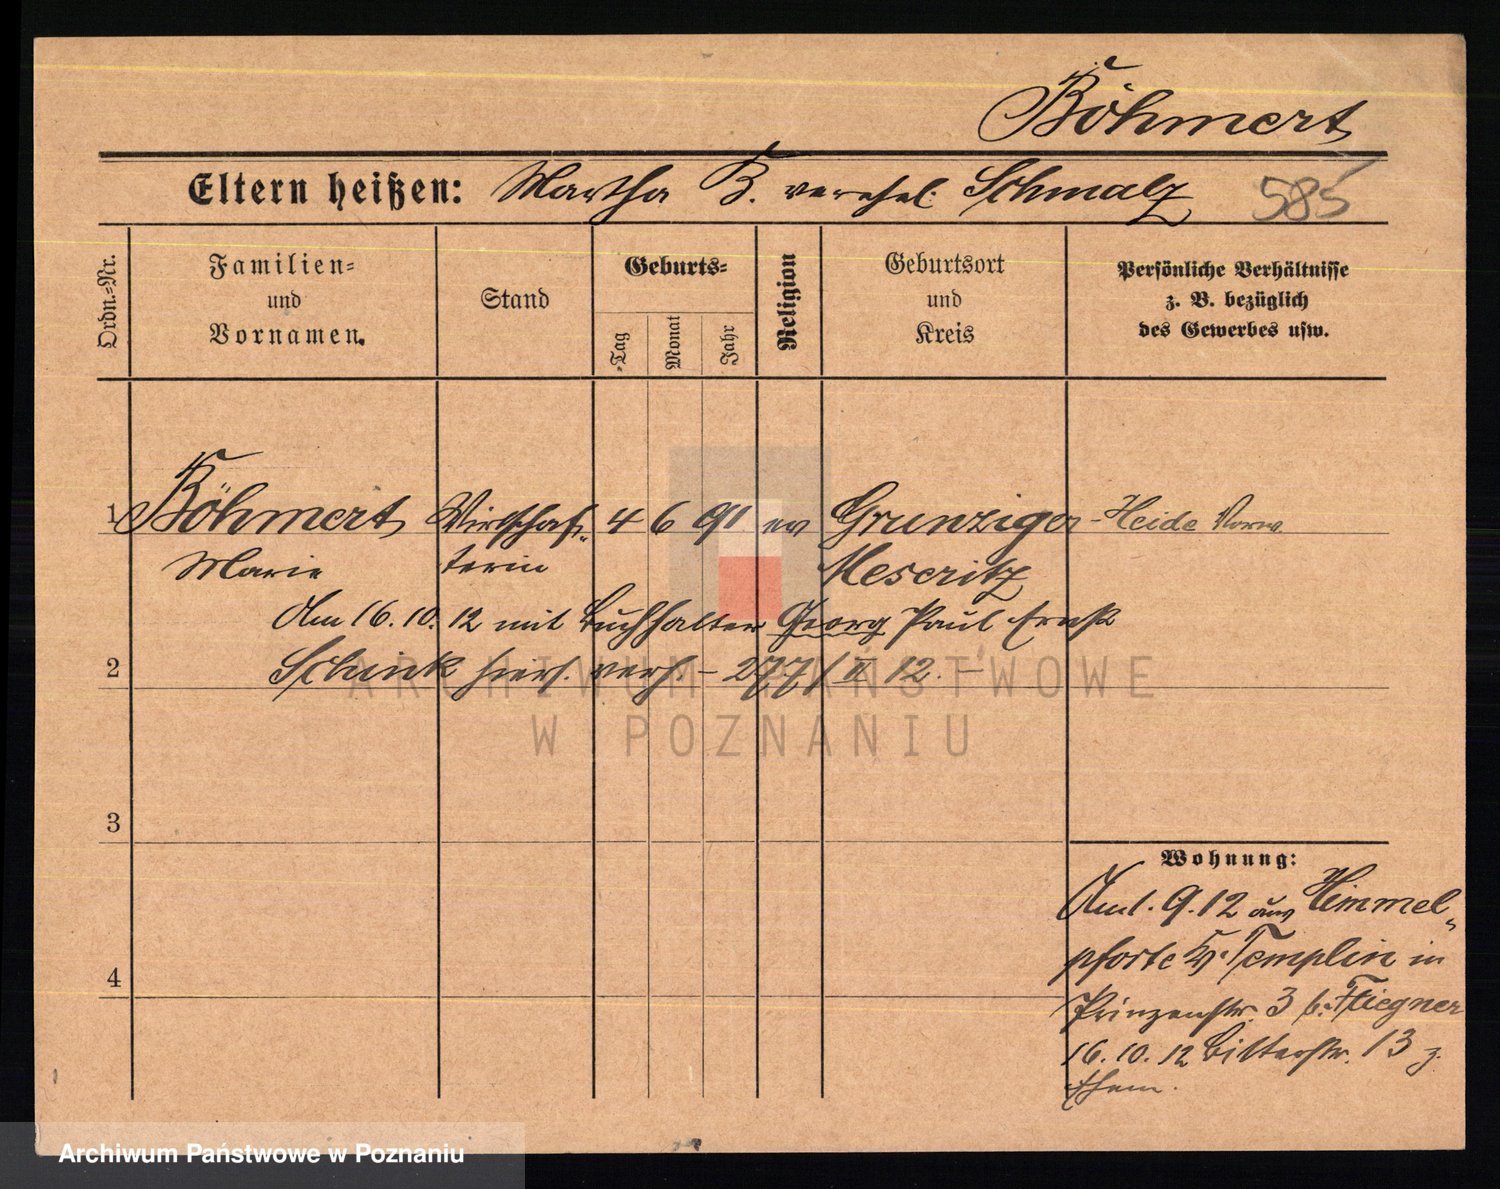 Böhmert
Eltern heißen: Martha B. verehel. Schmalz 585
Ordn.-Nr.
Familien-
und
Vornamen.
Stand
Geburts-
-Tag
Monat
Jahr
Religion
Geburtsort
und
Kreis
Persönliche Verhältnisse
z. B. bezüglich
des Gewerbes usw.
1 Böhmert Wirtschaf- 4 6 91 ev Grunziger-Heide Vorw.
Marie terin Meseritz
Am 16. 10. 12 mit Buchhalter Georg Paul Ernst
2 Schink hiers. verh. - 277/II 12. -
3
4
Wohnung:
Am 1. 9. 12 aus Himmel-
pforte Kr. Templin in
Prinzenstr. 3 b. Fliegner
16. 10. 12 Bitterstr. 13 z.
Ehem.
ARCHIWUM PAŃSTWOWE
W POZNANIU
Archiwum Państwowe w Poznaniu